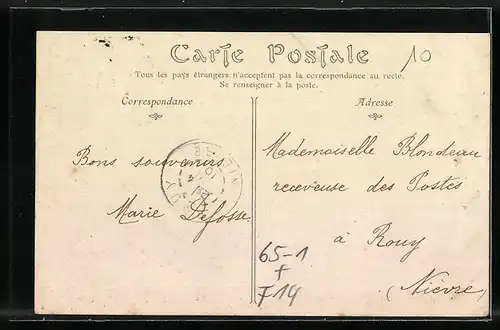 Carte Postale
10
Tous les pays étrangers n'acceptent pas la correspondance au recto.
Se renseigner à la poste.
Correspondance
Adresse
Bons souvenirs
Marie Defosse
Mademoiselle Blondeau
receveuse des Postes
à Rouy
(Nièvre)
65-1
+
F14